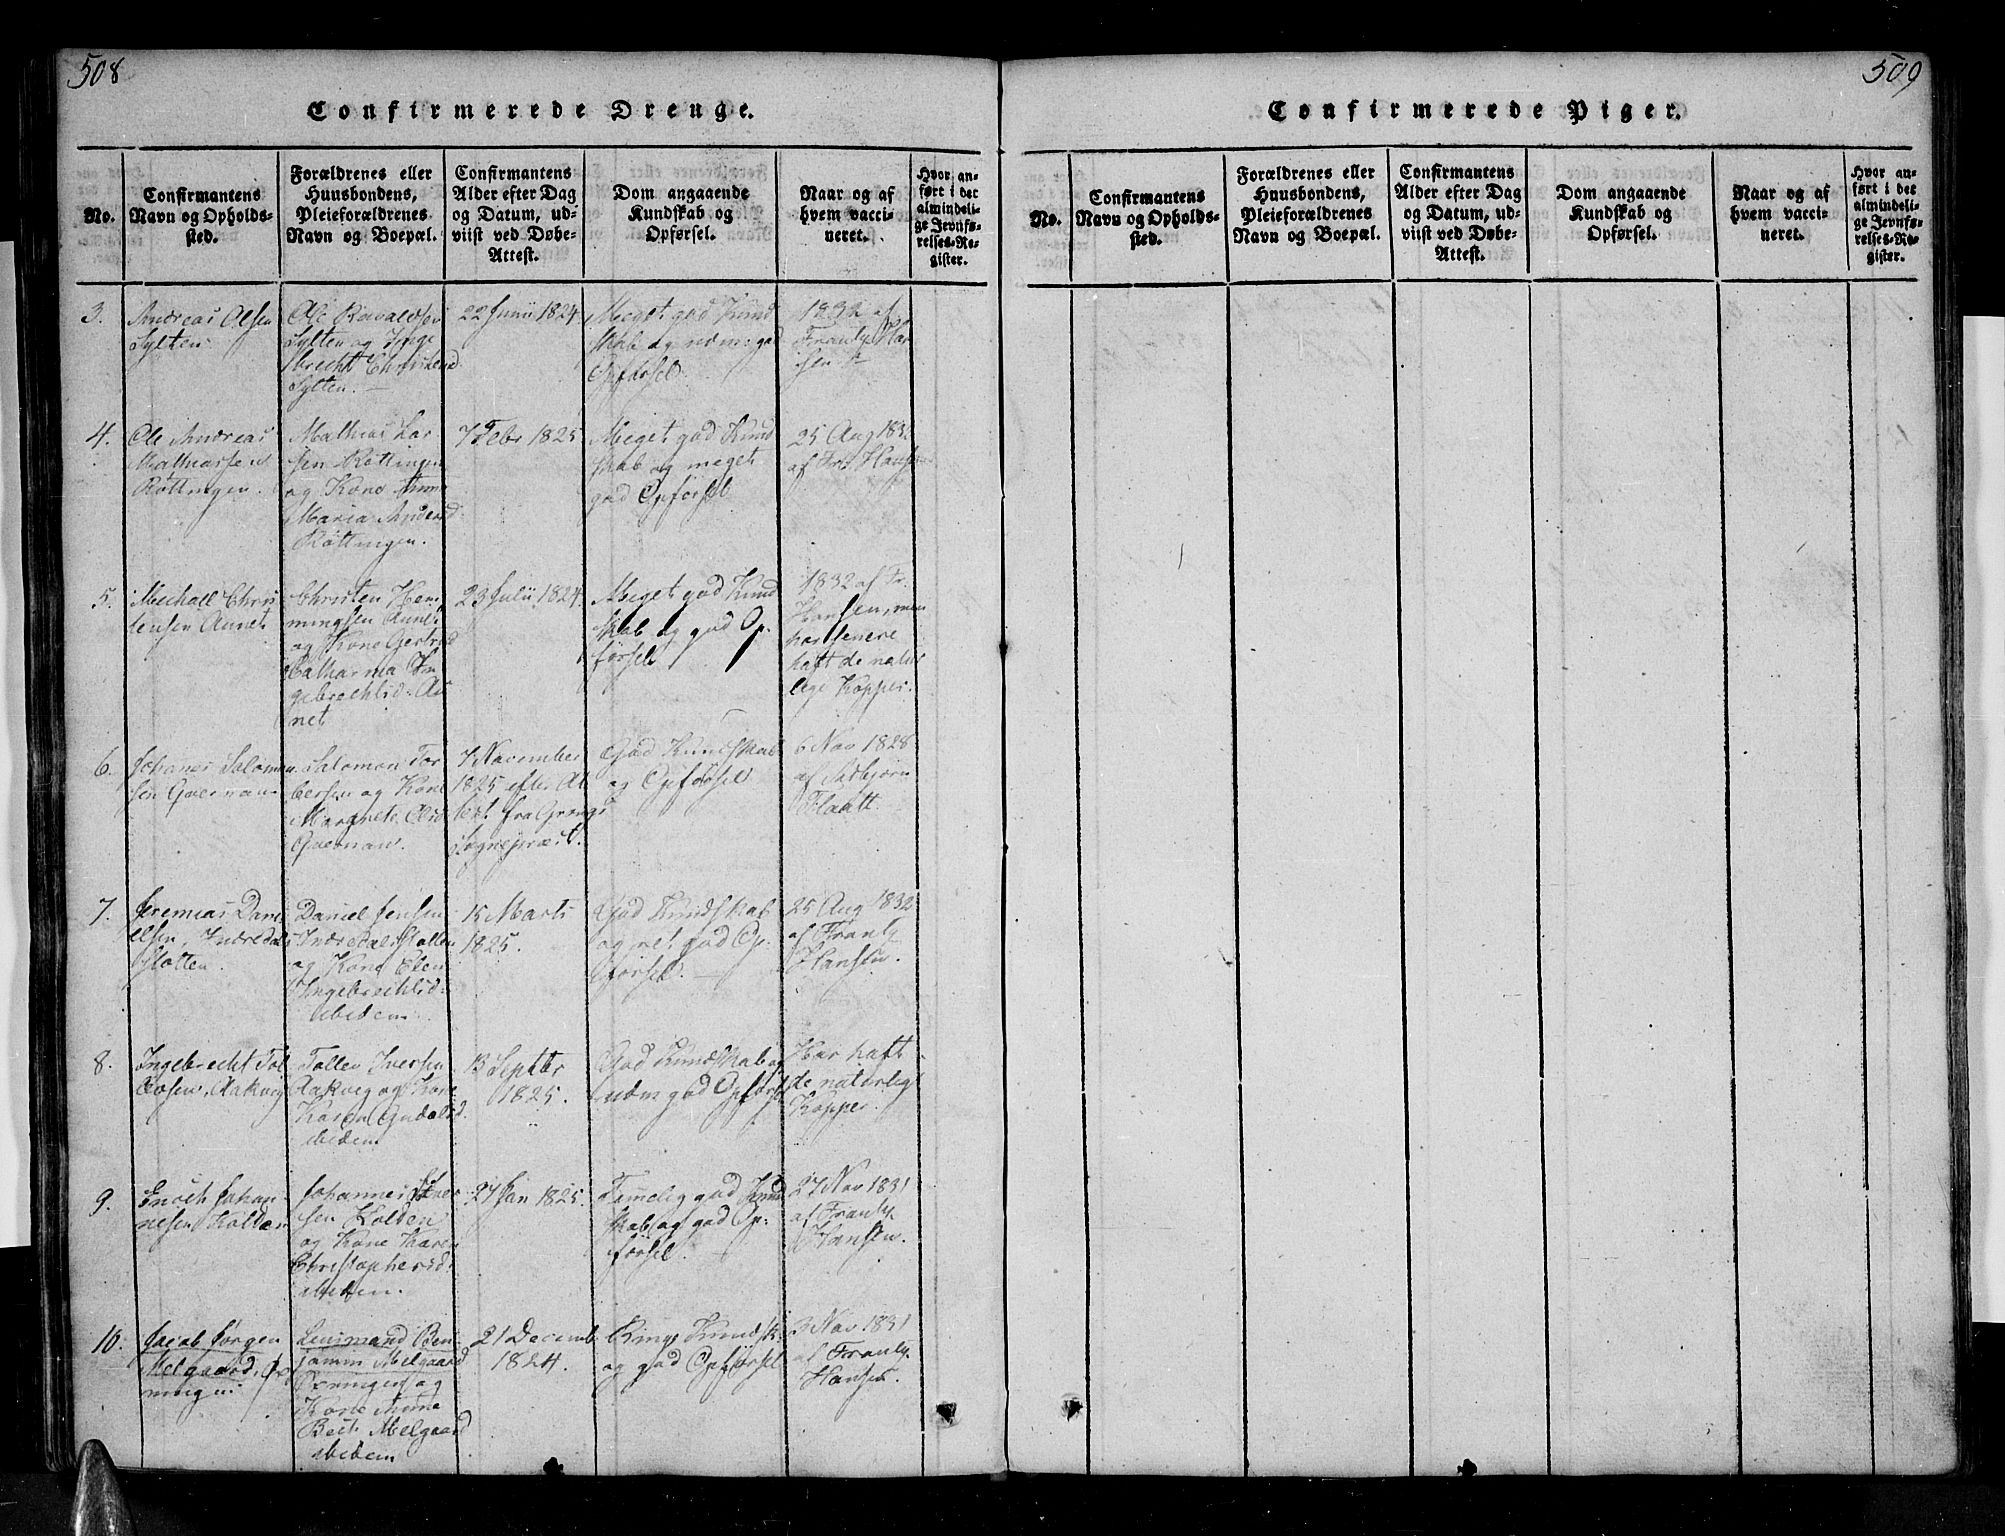 508
Confirmerede Drenge.
No.
Confirmantens
Navn og Opholds-
sted.
Forældrenes eller
Huusbondens,
Pleieforældrenes
Navn og Boepæl.
Confirmantens
Alder efter Dag
og Datum, ud-
viist ved Døbe-
Attest.
Dom angaaende
Kundskab og
Opførsel.
Naar og af
hvem vacci-
neret.
Hvor an-
ført i det
almindeli-
ge Jevnfø-
relses-Re-
gister.
3.
Andreas Olsen
Sylten
Ole Ravaldsen
Sylten og Inge
brecht Christensd
Sylten.
22 Junii 1824
Meget god Kund
skab og udm: god
Opførsel
1832 af
Frantz Han
sen
4.
Ole Andreas
Mathiassen
Röttingen.
Mathias Lar
sen Röttingen
og Kone Anne
Maria Andersd
Röttingen.
7 Febr 1825
Meget god Kund
skab og meget
god Opførsel
25 Aug 1832
af Fr. Hansen
5.
Michael Chris
tensen Aunet
Christen Hem
mingsen Aunet
og Kone Gertrud
Catharina In
gebrechtsd. Au
net
23 Julii 1824.
Meget god Kund
skab og god Op.
førsel
1832 af Fr.
Hansen, men
har senere
haft de natur
lige Kopper.
6.
Johanes Salomon
sen Quernan
Salomon Tor
bersen og Kone
Margrete Olsd
Quernan.
7 November
1825 efter At
test fra Grongs
Sognepræst.
God Kundskab
og Opførsel
6 Nov 1828
af Sivbjørn
Flaatt.
7.
Jeremias Dani
elsen, Indredals
slotten.
Daniel Jensen
Indredalsslotten
og Kone Elen
Ingebrechtsd.
ibidem.
15 Marts
1825.
God Kundskab
og ret god Op.
førsel.
25 Aug 1832
af Frantz
Hansen.
8.
Ingebrecht Tol
levsen, Aakvig
Tollev Iversen
Aakvig og Kone
Karen Gundalsd.
ibidem
13 Septbr
1825.
God Kundskab og
udm god Opførsel
Har haft
de naturlig
Kopper.
9.
Enoch Johan-
nesen Kolden
Johannes Iver
sen Kolden
og Kone Karen
Christophersd.
ibidem.
27 Jan 1825.
Temelig god Kund
skab og god Op.
førsel.
27 Nov 1831
af Frantz
Hansen.
10.
Jacob Jørgen
Melgaard, Ox
ningen.
Lensmand Ben
jamin Melgaard
Oxningen og
Kone Anne
Berit Melgaard
ibidem
21 Decemb
1824.
Ringe Kundsk.
og god Opførsel
3 Nov 1831
af Frantz
Hansen.
509
Confirmerede Piger.
No.
Confirmantens
Navn og Opholds-
sted.
Forældrenes eller
Huusbondens,
Pleieforældrenes
Navn og Boepæl.
Confirmantens
Alder efter Dag
og Datum, ud-
viist ved Døbe-
Attest.
Dom angaaende
Kundskab og
Opførsel.
Naar og af
hvem vacci-
neret.
Hvor an-
ført i det
almindeli-
ge Jevnfø-
relses-Re-
gister.